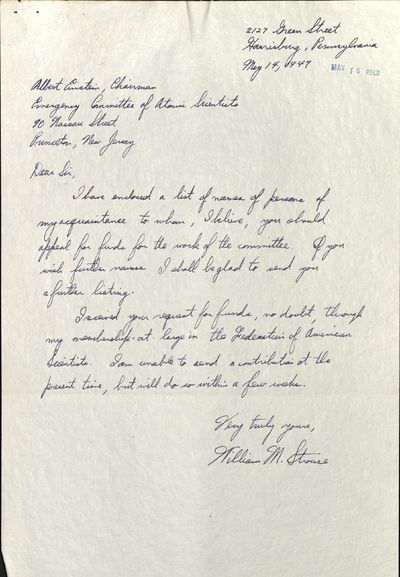 2127 Green Street
Harrisburg, Pennsylvania
May 14, 1947
MAY 16 REC'D
Albert Einstein, Chairman
Emergency Committee of Atomic Scientists
90 Nassau Street
Princeton, New Jersey
Dear Sir,
I have enclosed a list of names of persons of
my acquaintance to whom, I believe, you should
appeal for funds for the work of the committee. If you
wish further names I shall be glad to send you
a further listing.
I received your request for funds, no doubt, through
my membership-at-large in the Federation of American
Scientists. I am unable to send a contribution at the
present time, but will do so within a few weeks.
Very truly yours,
William M. Strouse